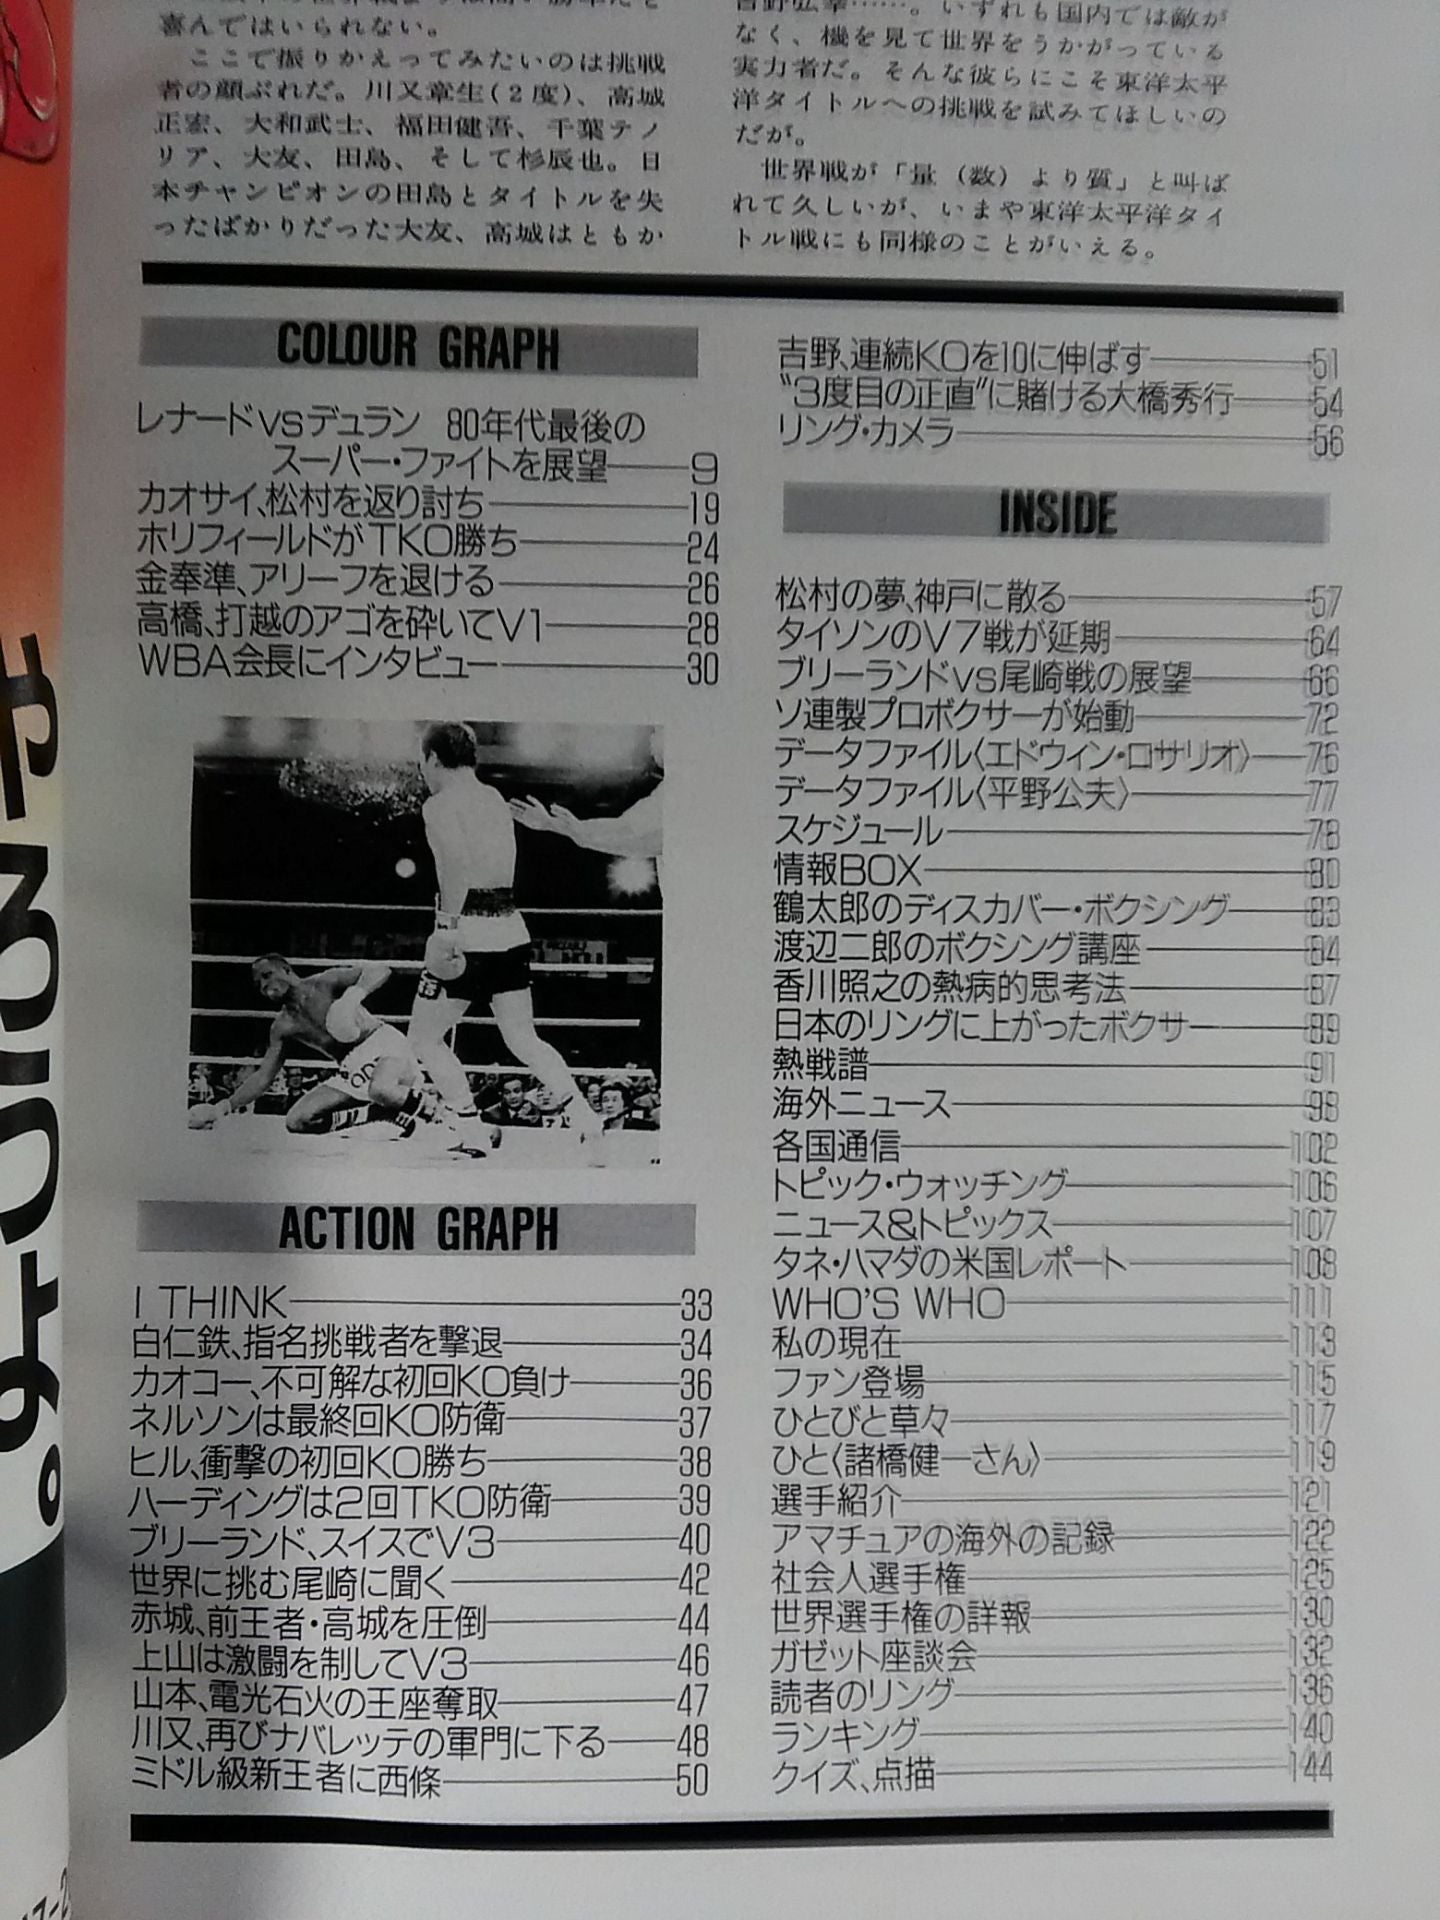 喜んではいられない。
ここで振りかえってみたいのは挑戦
者の顔ぶれだ。川又章生(2度)、高城
正宏、大和武士、福田健吾、千葉テノ
リア、大友、田島、そして杉辰也。日
本チャンピオンの田島とタイトルを失
ったばかりだった大友、高城はともか
吉野弘幸……。いずれも国内では敵が
なく、機を見て世界をうかがっている
実力者だ。そんな彼らにこそ東洋太平
洋タイトルへの挑戦を試みてほしいの
だが。
世界戦が「量(数)より質」と叫ば
れて久しいが、いまや東洋太平洋タイ
トル戦にも同様のことがいえる。
COLOUR GRAPH
レナードvsデュラン 80年代最後の
スーパー・ファイトを展望 9
カオサイ、松村を返り討ち 19
ホリフィールドがTKO勝ち 24
金奉準、アリーフを退ける 26
高橋、打越のアゴを砕いてV1 28
WBA会長にインタビュー 30
ACTION GRAPH
I THINK 33
白仁鉄、指名挑戦者を撃退 34
カオコー、不可解な初回KO負け 36
ネルソンは最終回KO防衛 37
ヒル、衝撃の初回KO勝ち 38
ハーディングは2回TKO防衛 39
ブリーランド、スイスでV3 40
世界に挑む尾崎に聞く 42
赤城、前王者・高城を圧倒 44
上山は激闘を制してV3 46
山本、電光石火の王座奪取 47
川又、再びナバレッテの軍門に下る 48
ミドル級新王者に西條 50
吉野、連続KOを10に伸ばす 51
“3度目の正直”に賭ける大橋秀行 54
リング・カメラ 56
INSIDE
松村の夢、神戸に散る 57
タイソンのV7戦が延期 64
ブリーランドvs尾崎戦の展望 66
ソ連製プロボクサーが始動 72
データファイル〈エドウィン・ロサリオ〉 76
データファイル〈平野公夫〉 77
スケジュール 78
情報BOX 80
鶴太郎のディスカバー・ボクシング 83
渡辺二郎のボクシング講座 84
香川照之の熱病的思考法 87
日本のリングに上がったボクサー 89
熱戦譜 91
海外ニュース 98
各国通信 102
トピック・ウォッチング 106
ニュース&トピックス 107
タネ・ハマダの米国レポート 108
WHO'S WHO 111
私の現在 113
ファン登場 115
ひとびと草々 117
ひと〈諸橋健一さん〉 119
選手紹介 121
アマチュアの海外の記録 122
社会人選手権 125
世界選手権の詳報 130
ガゼット座談会 132
読者のリング 136
ランキング 140
クイズ、点描 144